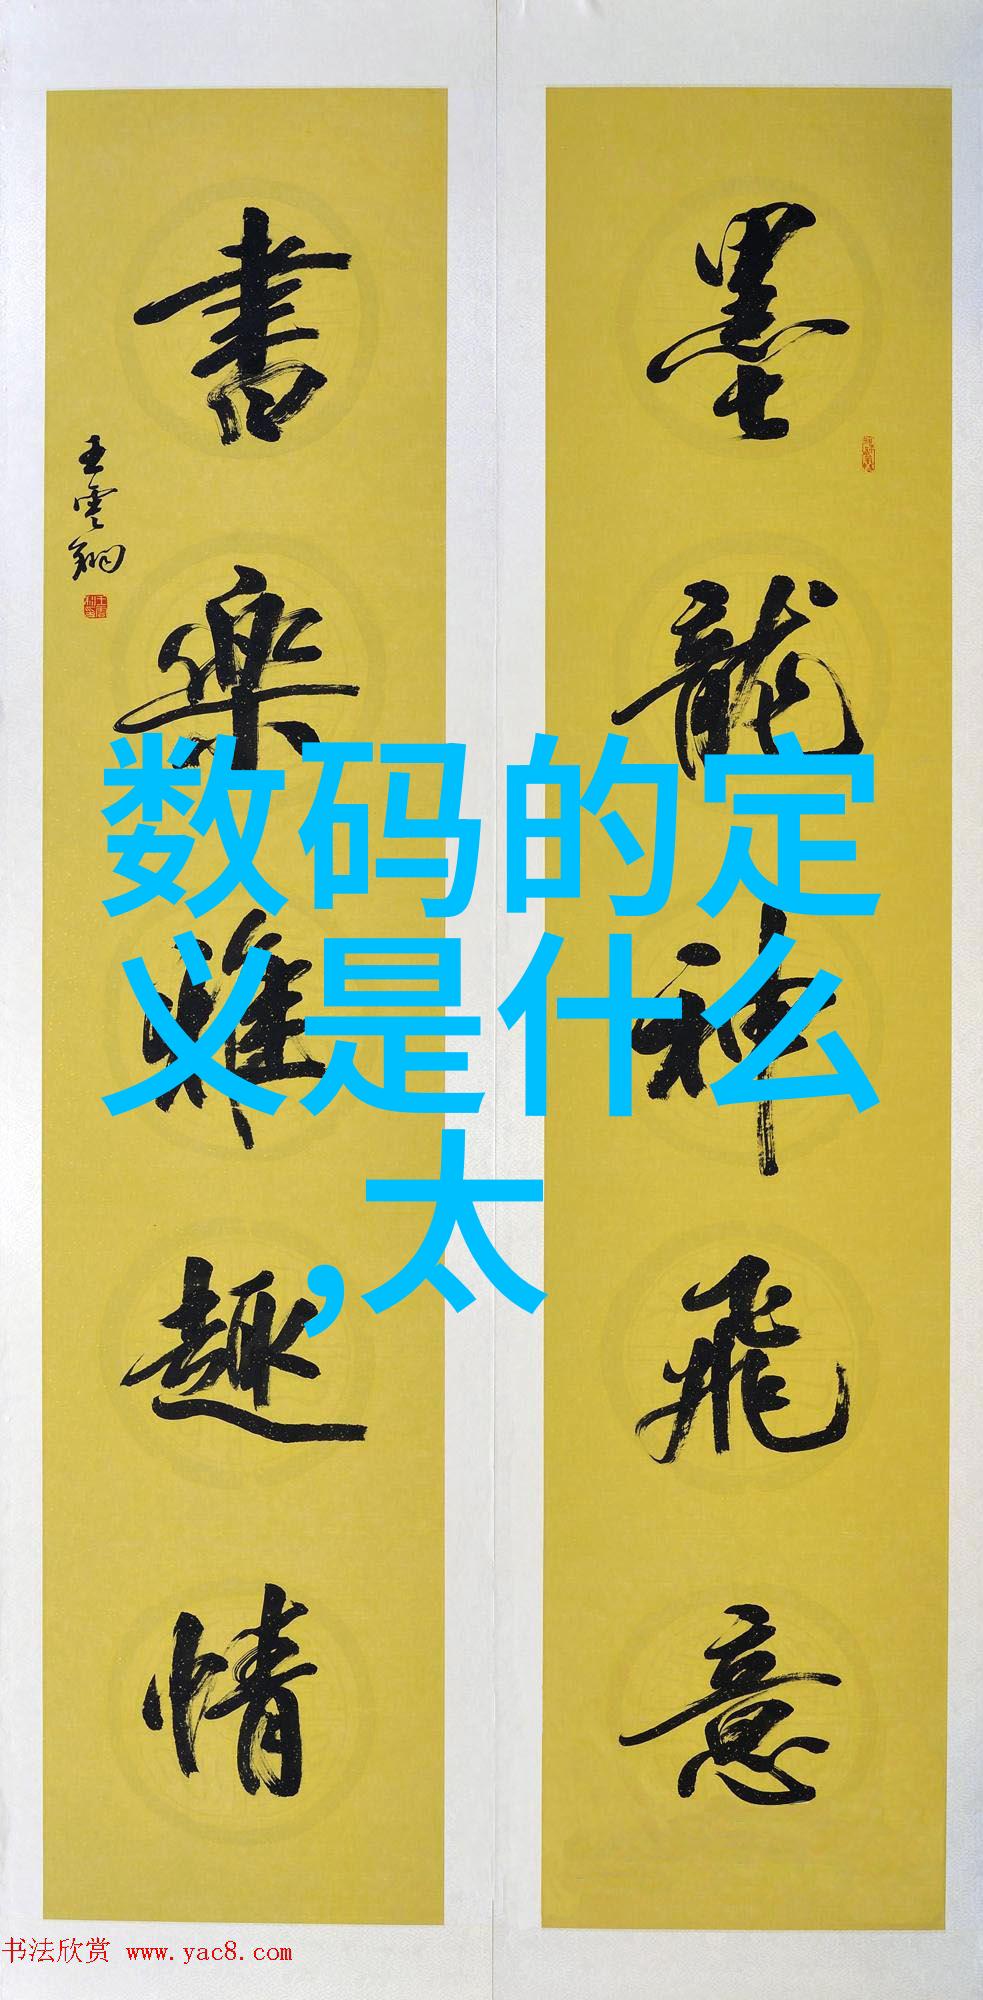 墨龍神飛意
書樂雅趣情
王雲翔
数码的定
义是什么
,太
书法欣赏 www.yac8.com